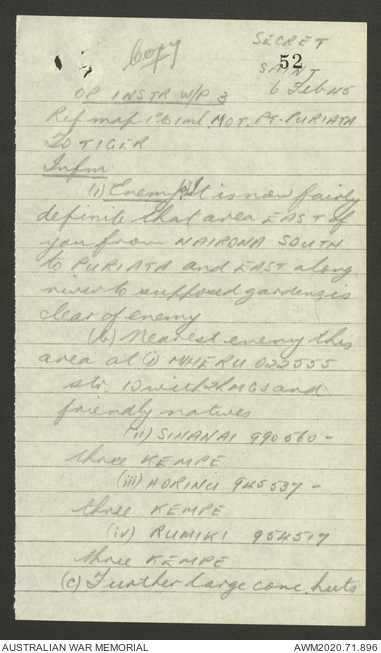 Copy
SECRET
52
SAINT
6 Feb 45
OP INSTR W/P 3
Ref map 1" to 1 ml MOT. PT-PURIATA
TO TIGER
Infm
(1) Enemy (a) It is now fairly
definite that area EAST of
you from NAIRONA SOUTH
to PURIATA and EAST along
river to supposed gardens is
clear of enemy
(b) Nearest enemy this
area at (i) 022555
str 10 with 2 LMGs and
friendly natives
(ii) SINANAI 990560 -
three KEMPE
(iii) HORINU 945537 -
three KEMPE
(iv) RUMIKI 954517
three KEMPE
(c) Further large conc. huts
AUSTRALIAN WAR MEMORIAL
AWM2020.71.896